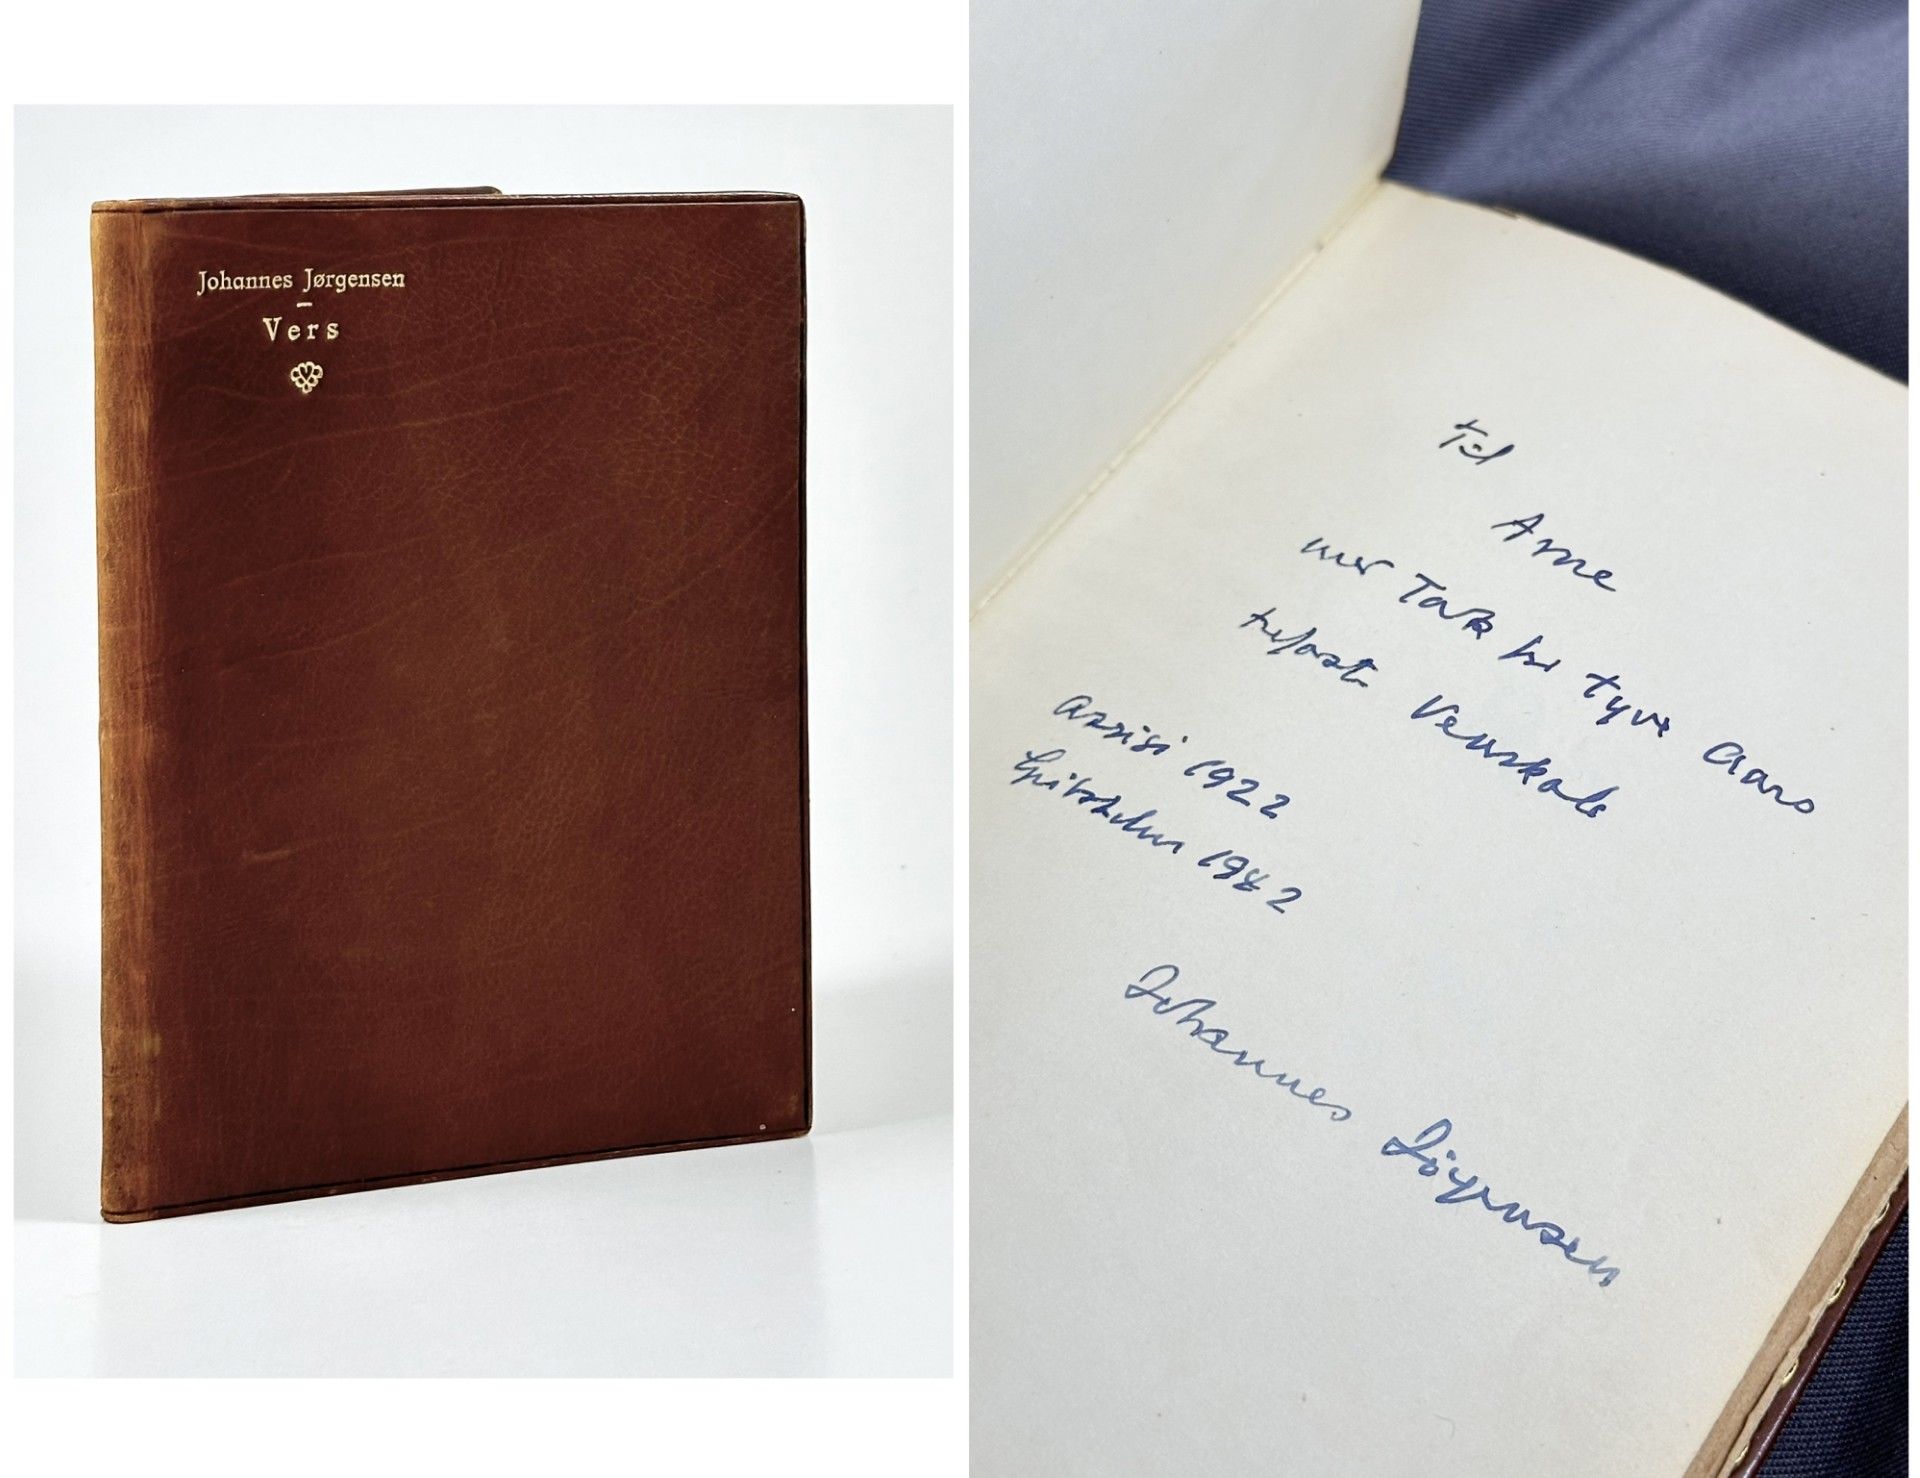 Johannes Jørgensen
Vers
Til
Arne
mer Tak for tyve Aars
trofast Venskab
Assisi 1922
1942
Johannes Jörgensen